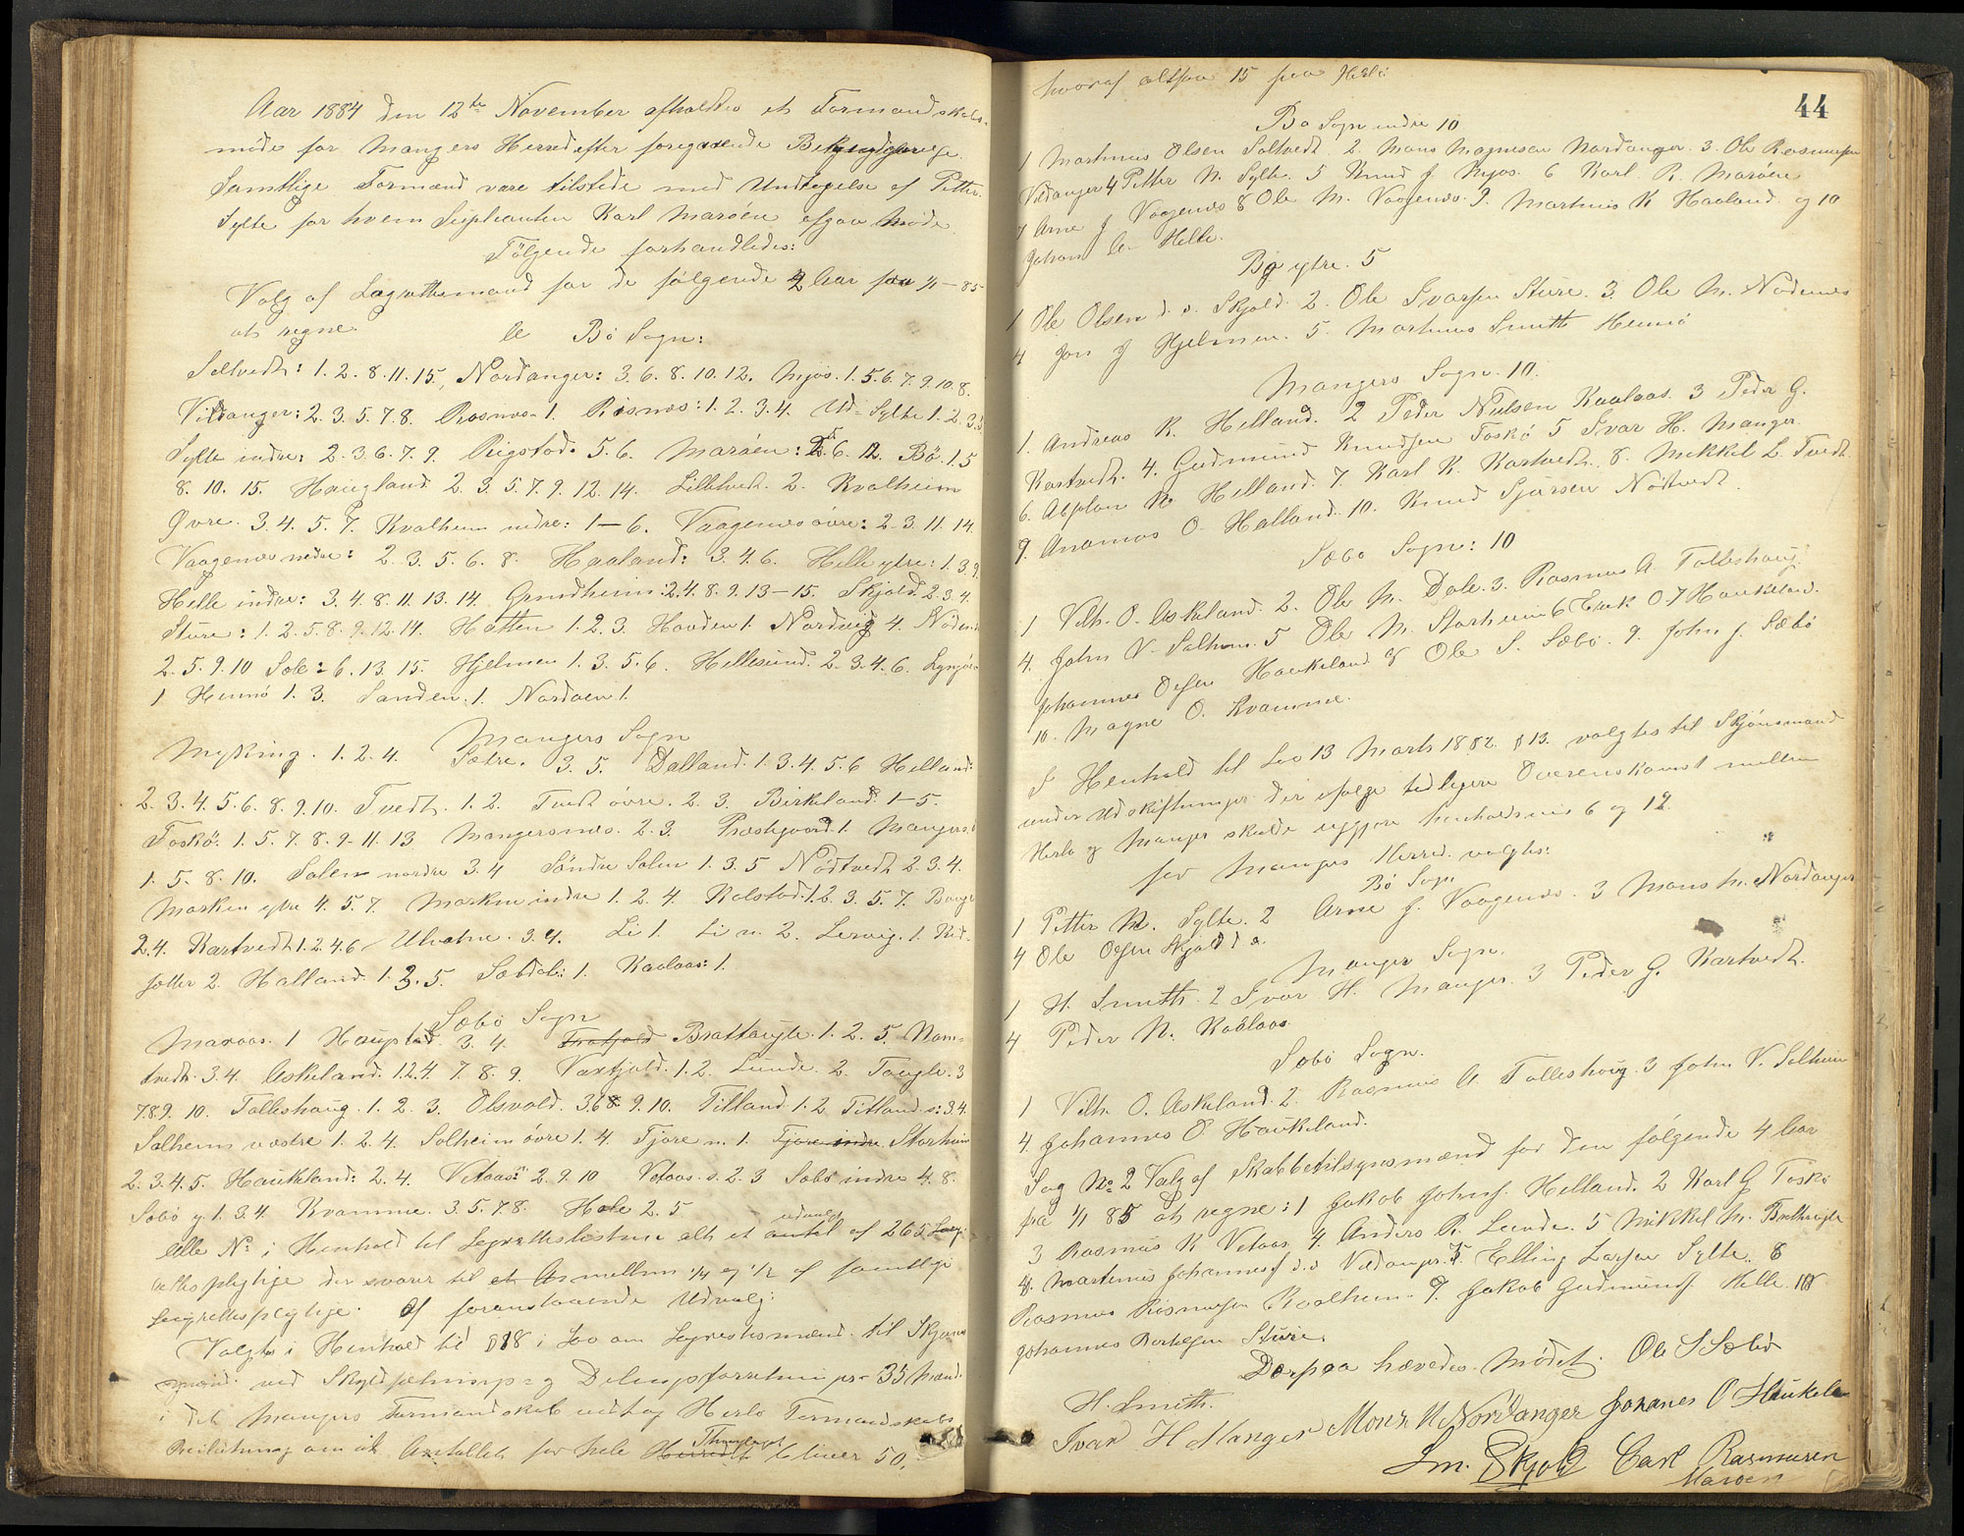 Aar 1884 den 12te November afholdtes et Formandskabs-
møde for Mangers Herred efter foregaaende Bekjendtgjørelse.
Samtlige Formænd vare tilstede med Undtagelse af Petter
Sylte for hvem Supleanten Karl Marøen afgav Møde.
Følgende forhandledes:
Valg af Lagrettemænd for de følgende 2 Aar fra 1/1-85
at regne.
Bø Sogn:
Soltvedt: 1. 2. 8. 11. 15, Nordanger: 3. 6. 8. 10. 12. Mjøs. 1. 5. 6. 7. 9. 10. 8.
Vildanger: 2. 3. 5. 7. 8. Rosnes 1. Risnes: 1. 2. 3. 4. Ud-Sylte 1. 2. 3.
Sylte indre: 2. 3. 6. 7. 9. Rigstad. 5. 6. Marøen: 6. 12. Bø. 1. 5
8. 10. 15. Haugland. 2. 3. 5. 7. 9. 12. 14. Litletvedt. 2. Kvalheim
Øvre. 3. 4. 5. 7. Kvalheim nedre: 1-6. Vaagenes øvre: 2. 3. 11. 14.
Vaagenes nedre: 2. 3. 5. 6. 8. Haaland: 3. 4. 6. Helle ytre: 1. 3. 9.
Helle indre: 3. 4. 8. 11. 13. 14. Grindheim: 2. 4. 8. 9. 13-15. Skjold. 2. 3. 4.
Sture: 1. 2. 5. 8. 9. 12. 14. Hatten 1. 2. 3. Houden 1. Nordvig 4. Nødenes
2. 5. 9. 10 Sole: 6. 13. 15. Hjelmen 1. 3. 5. 6. Hellesund. 2. 3. 4. 6.
1 Hernø 1. 3. Sanden. 1. Nordøen 1.
Mangers Sogn
Myking. 1. 2. 4. Sætre. 3. 5. Dalland. 1. 3. 4. 5. 6 Helland:
2. 3. 4. 5. 6. 8. 9. 10. Tvedt. 1. 2. Tvedt øvre. 2. 3. Birkeland. 1-5.
Toskø: 1. 5. 7. 8. 9-11. 13 Mangersnes. 2. 3. Præstegaard. 1 Mangers
1. 5. 8. 10. Solem nordre 3. 4 Søndre Solem 1. 3. 5 Nødtvedt 2. 3. 4.
Marken ytre 4. 5. 7. Marken indre 1. 2. 4. Rolstad. 1. 2. 3. 5. 7.
2. 4. Kartvedt 1. 2. 4. 6 Ulvatne. 3. 4. Li 1. Li n. 2. Lervig. 1.
2. Halland. 1. 3. 5. Sæbdal: 1. Kaalaas: 1.
Sæbø Sogn
Maraas. 1 Haugstad. 3. 4. Brattaugle. 1. 2. 5. Nam-
tvedt. 3. 4. Askeland. 1. 2. 4 7. 8. 9. Vaxfjold. 1. 2. Lunde. 2. Taugle. 3
7. 8. 9. 10. Talleshaug. 1. 2. 3. Olsvold. 3. 6. 8 9. 10. Titland. 1. 2. Titland s: 3. 4.
Solheim vestre 1. 2. 4. Solheim øvre 1. 4. Fjøre n. 1. Fjøre indre Storheim
2. 3. 4. 5. Haukeland: 2. 4. Vetaas: 2. 9. 10 Vetaas. s. 2. 3 Sæbø indre 4. 8.
Sæbø y. 1. 3. 4. Kvamme. 3. 5. 7. 8. Hole 2. 5
udvalgt
alle No i Henhold til Lagretteslistene alt et antal af 265 Lag-
rettespligtige der svarer til et As mellem 1/4 og 1/2 af samtlige
Lagrettespligtige. Af foranstaaende Udvalg:
Valgtes i Henhold til § 18 i Lov om Lagrettesmænd til Skjøns-
mænd ved Skyldsætnings- og Delingsforretninger 35 Mænd
i det Mangers Formandskab vedtog Herlø Formandskabs
Beslutning om at Antallet for hele Herredet Thinglaget bliver 50.
hvoraf altsaa 15 paa Herlø
44
Bø Sogn indre 10
1 Martinus Olsen Soltvedt 2. Mons Magnesen Nordanger. 3. Ole Rasmussen
Vildanger 4 Petter N. Sylte. 5 Knud J Mjøs. 6 Karl R. Marøen
7 Arne J Vaagenes 8 Ole M. Vaagenes. 9. Martinus K Haaland. og 10
Johan A- Helle.
Bø ytre. 5
1 Ole Olsen d. a. Skjold. 2. Ole Ivarsen Sture. 3. Ole M. Nødenes
4 Jon J Hjelmen. 5. Martinus Smith Hernø
Mangers Sogn. 10.
1. Andreas R. Helland. 2 Peder Nielsen Kaalaas. 3 Peder G.
Kartvedt. 4. Gudmund Knudsen Toskø 5 Ivar H. Manger.
6. N Helland. 7. Karl K. Kartvedt. 8. Mikkel L. Tvedt.
9. Ananias O Halland. 10. Knud Sjursen Nødtvedt.
Sæbø Sogn: 10
1 Vilh. O. Askeland. 2. Ole M. Dale. 3. Rasmus A. Talleshaug
4. John V. Solheim. 5 Ole M. Storheim 6 Erik O 7 Haukeland.
Johannes Olsen Haukeland 8 Ole S. Sæbø. 9. John J. Sæbø
10. Magne O. Kvamme.
I Henhold til Lov 13 Marts 1882. § 13. valgtes til Skjønsmænd
under Udskiftninger der ifølge tidligere Overenskomst mellem
Herlø og Manger skulde udgjøre henholdsvis 6 og 12.
for Mangers Herred valgtes:
Bø Sogn
1 Petter M. Sylte. 2 Arne J. Vaagenes. 3 Mons M. Nordanger
4 Ole Olsen Skjold d a.
Manger Sogn.
1 H. Smith. 2 Ivar H. Manger. 3 Peder G. Kartvedt.
4 Peder N. Kaalaas.
Sæbø Sogn.
1 Vilh. O. Askeland. 2. Rasmus A Talleshoug. 3 John V. Solheim
4. Johannes O. Haukeland.
Sag No 2 Valg af Skabbetilsynsmænd for den følgende 4 Aar
fra 1/1 85 at regne: 1 Jakob Johns. Helland. 2 Karl G Toskø
3 Rasmus K Vetaas. 4. Anders R. Lunde. 5 Mikkel M. Brattaugle
6. Martinus Johannes. d. a Vildanger. 7. Elling Larsen Sylte. 8
Rasmus Rasmussen Kvalheim. 9. Jakob Gudmunds. Helle. 10
Johannes Bertelsen Sture.
Derpaa hævedes Mødet. Ole S Sæbø
H. Smith.
Ivar H Manger Mons M Nordanger Johanes O Haukeland
Skjold Carl Rasmusen
Marøen